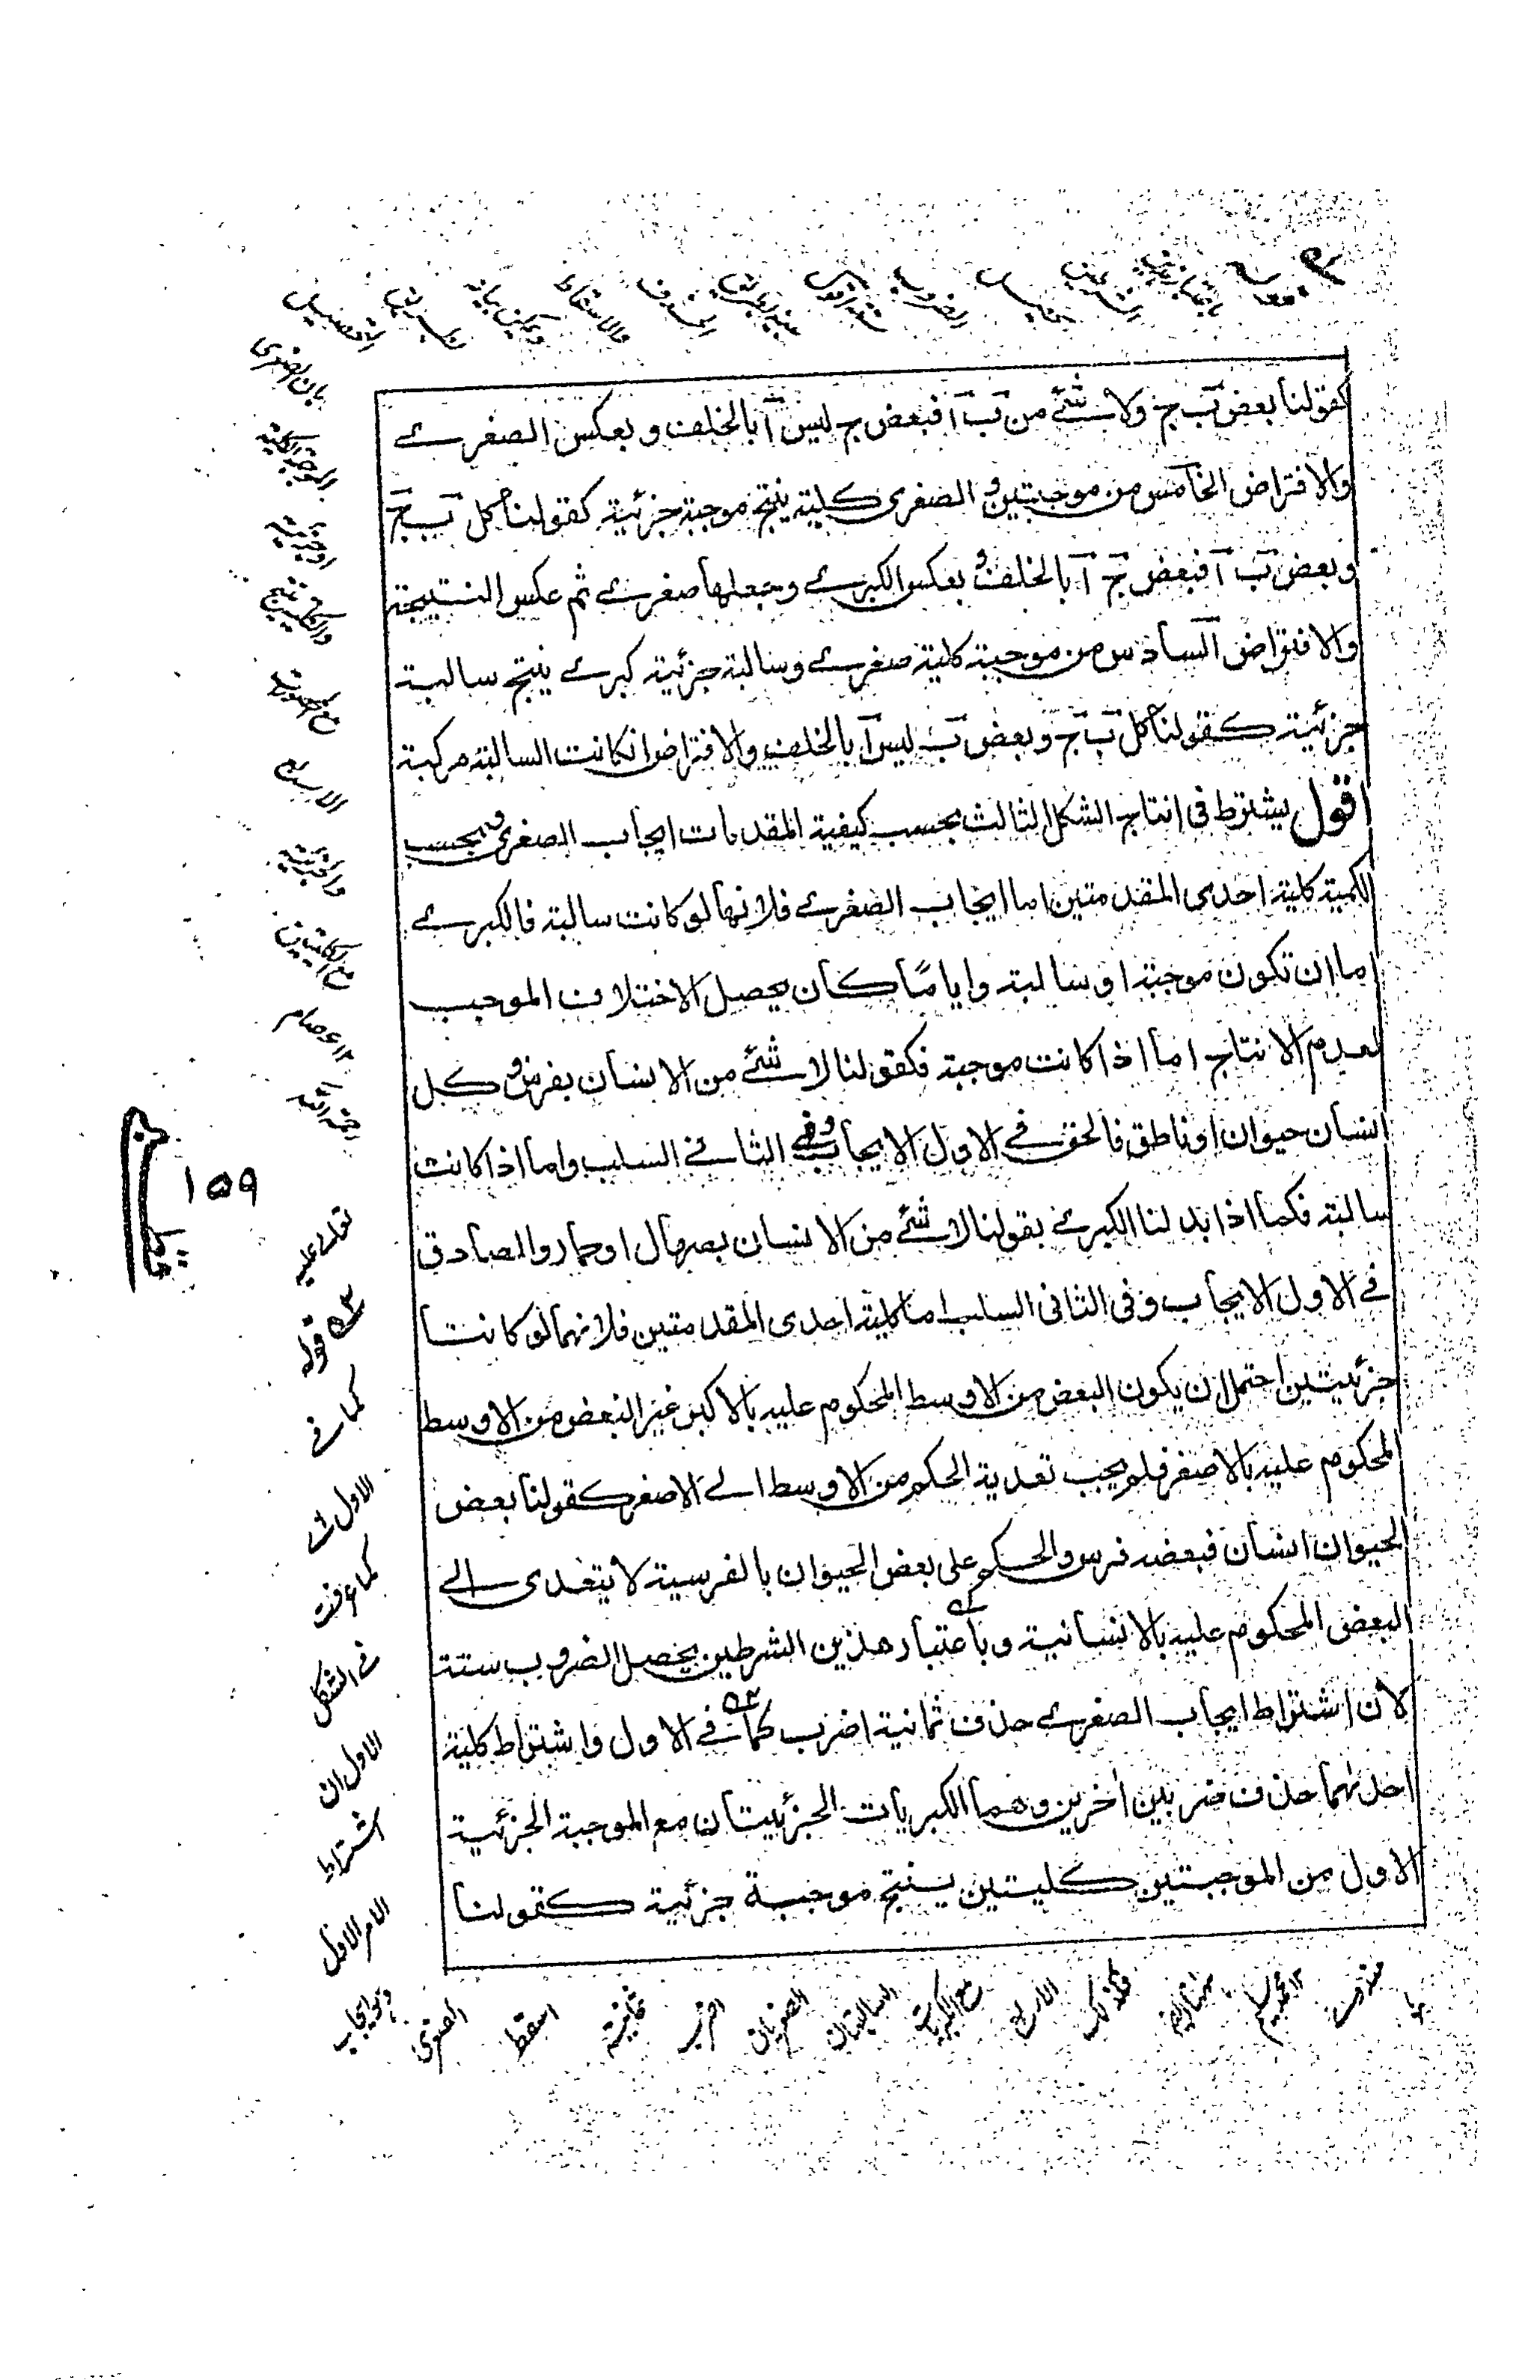 كقولنا بعض ب ج ولا شئ من ب آ فبعض ج ليس آ بالخلف وبعكس الصغرے
والافتراض الخامس من موجبتين و الصغرى كلية ينتج موجبة جزئية كقولنا كل ب ج
وبعض ب آ فبعض ج آ بالخلف و بعكس الكبرے وجعلها صغرے ثم عكس النتيجة
والافتراض السادس من موجبة كلية صغرے وسالبة جزئية كبرے ينتج سالبة
جزئية كقولنا كل ب ج وبعض ب ليس آ بالخلف والافتراض انكانت السالبة مركبة
اقول يشترط فى انتاج الشكل الثالث بحسب كيفية المقدمات ايجاب الصغرى و بحسب
الكمية كلية احدى المقدمتين اما ايجاب الصغرے فلانها لو كانت سالبة فالكبرے
اما ان تكون موجبة او سالبة وايا ما كان يحصل الاختلاف الموجب
لعدم الانتاج اما اذا كانت موجبة فكقولنا لا شئ من الانسان بفرس و كل
انسان حيوان او ناطق فالحق فے الاول الايجاب وفے الثانے السلب واما اذا كانت
سالبة فكما اذا بدلنا الكبرے بقولنا لا شئ من الانسان بصهال او حمار والصادق
فے الاول الايجاب وفى الثانى السلب اما كلية احدى المقدمتين فلانهما لو كانتا
جزئيتين احتمل ان يكون البعض من الاوسط المحكوم عليه بالاكبر غير البعض من الاوسط
المحكوم عليه بالاصغر فلم يجب تعدية الحكم من الاوسط الے الاصغر كقولنا بعض
الحيوان انسان فبعضه فرس والحكم على بعض الحيوان بالفرسية لا يتعدى الے
البعض المحكوم عليه بالانسانية وباعتبار هذين الشرطين يحصل الضروب ستة
لان اشتراط ايجاب الصغرے حذف ثمانية اضرب كما فے الاول واشتراط كلية
احدٰهما حذف ضربين اخرين وهما الكبريات الجزئيتان مع الموجبة الجزئية
الاول من الموجبتين كليتين ينتج موجبة جزئية كقولنا
الموجبة الكلية
والجزئية
١٢ عصام
رحمة الله
١٥٩
تعالے عليه
٥٣ قوله
كما فے
الاول
كما عرفت
فے الشكل
الاول ان
اشتراط
الامر الاول
وهو ايجاب
الصغرى
اسقط
ثمانية
اضرب
الصغريان
السالبتان
مع الكبريات
الاربع
فكذلك